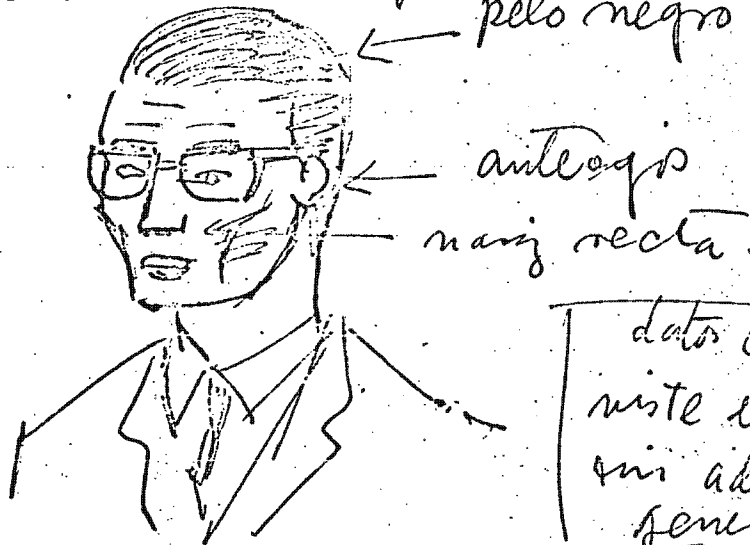 pelo negro
anteojos
nariz recta
datos
viste e
sus ad
gene